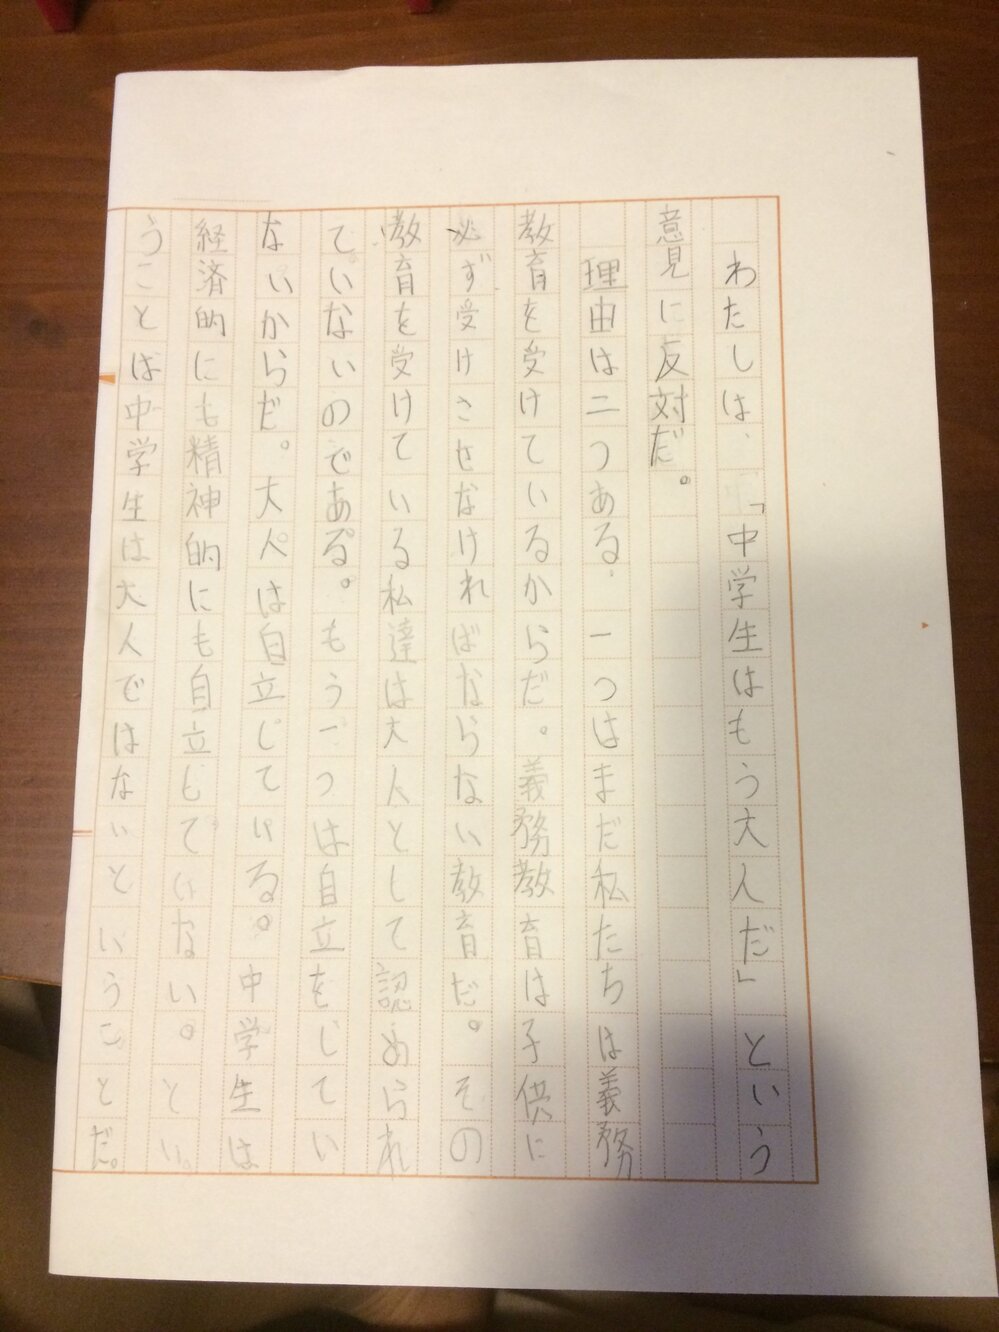 わたしは、「中学生はもう大人だ」という
意見に反対だ。
理由は二つある。一つはまだ私たちは義務
教育を受けているからだ。義務教育は子供に
必ず受けさせなければならない教育だ。その
教育を受けている私達は大人として認められ
ていないのである。もう一つは自立をしてい
ないからだ。大人は自立している。中学生は
経済的にも精神的にも自立していない。とい
うことは中学生は大人ではないということだ。